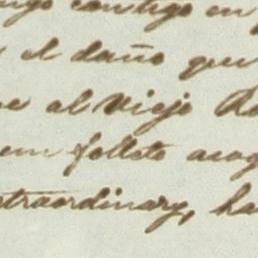 contigo en
el daño que
al Viejo
un folleto acog
xtraordinary, ha